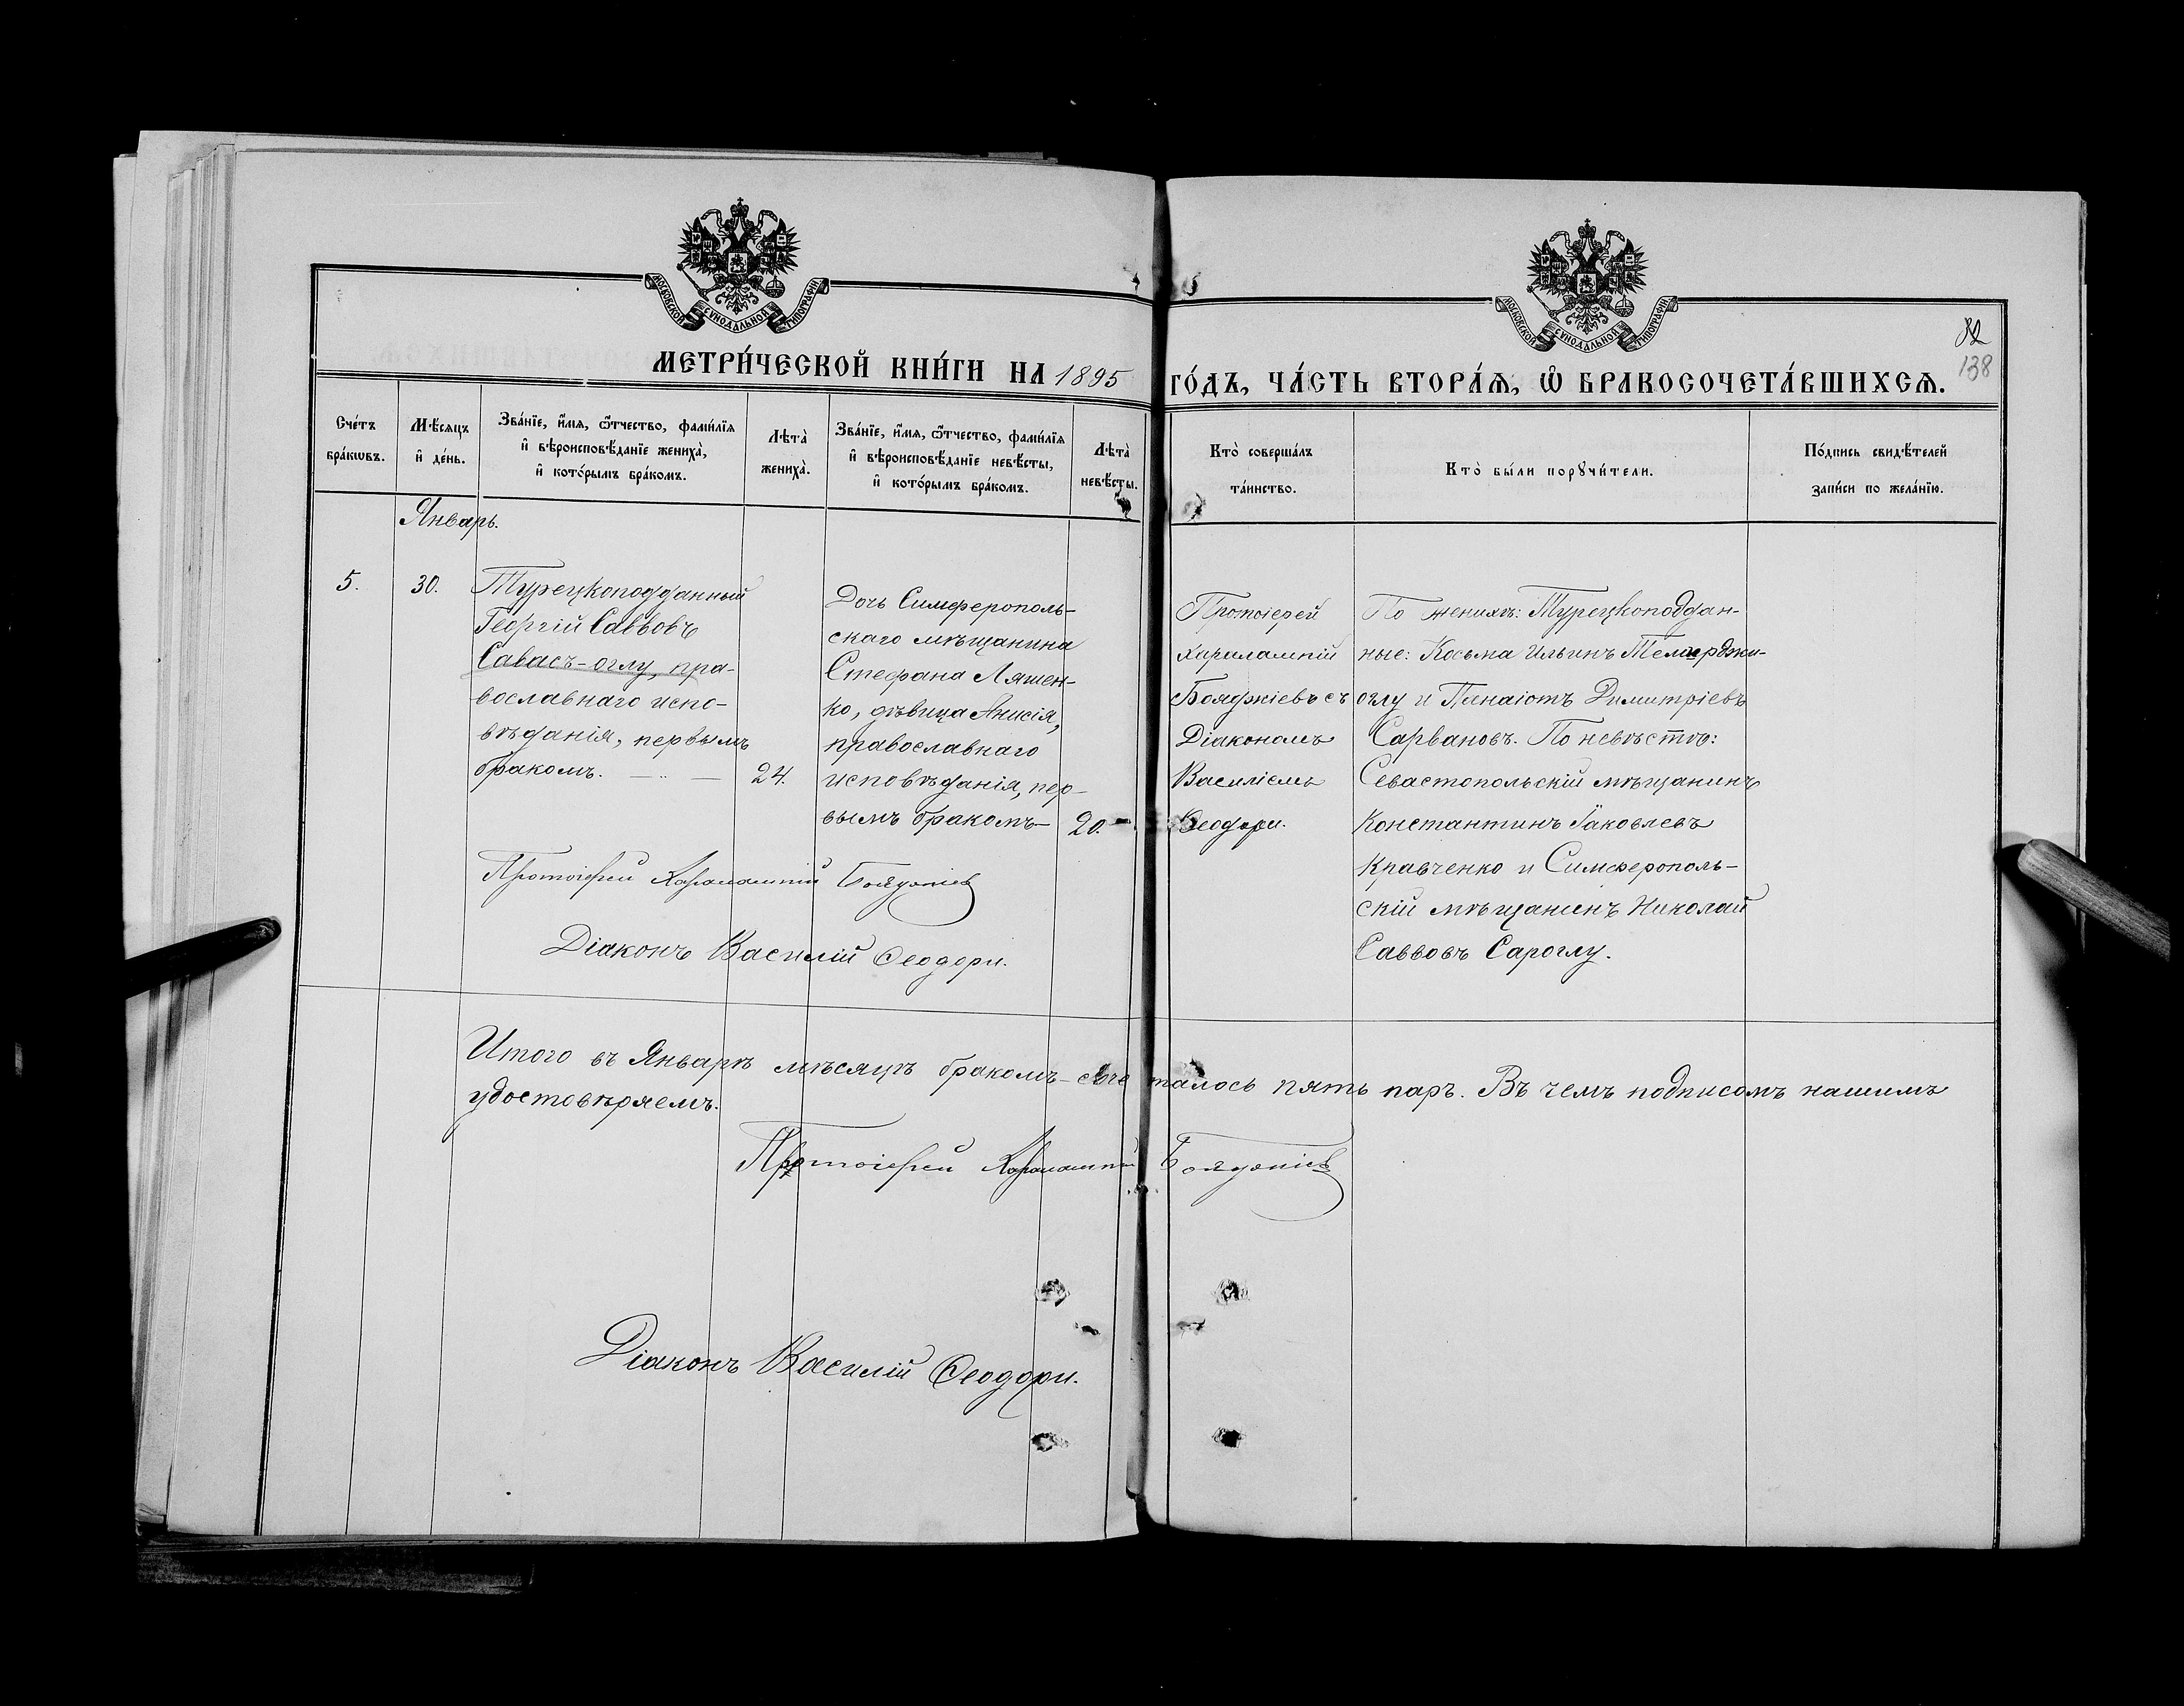 МОСКОВСКОЙ СѴНОДАЛЬНОЙ ТИПОГРАФІИ
МОСКОВСКОЙ СѴНОДАЛЬНОЙ ТИПОГРАФІИ
82
138
МЕТРИ́ЧЕСКОЙ КНИ́ГИ НА 1895 ГО́ДЪ, ЧА́СТЬ ВТОРА́Ѧ, Ѽ БРАКОСОЧЕТА́ВШИХСѦ.
Сче́тъ
бра́кѡвъ.
Мѣ́сяцъ
и҆ де́нь.
Зва́нїе, и҆́мя, ѻ҆́тчество, фами́лїя
и҆ вѣроисповѣ́данїе жениха̀,
и҆ кото́рымъ бра́комъ.
Лѣта̀
жениха̀.
Зва́нїе, и҆́мя, ѻ҆́тчество, фами́лїя
и҆ вѣроисповѣ́данїе невѣ́сты,
и҆ кото́рымъ бра́комъ.
Лѣта̀
невѣ́сты.
Кто̀ соверша́лъ
та́инство.
Кто̀ бы́ли порꙋчи́тели.
По́дпись свидѣ́телей
за́писи по жела́нїю.
Январь.
5.
30.
Турецкоподданный
Георгій Саввовъ
Савасъ-оглу, пра-
вославнаго испо-
вѣданія, первымъ
бракомъ. — .. —
24.
Дочь Симферополь-
скаго мѣщанина
Стефана Ляшен-
ко, дѣвица Анисія,
православнаго
исповѣданія, пер-
вымъ бракомъ—
20.
Протоіерей
Харалампій
Бояджіевъ съ
Діакономъ
Василіемъ
Ѳеодори.
По женихѣ: Турецкоподдан-
ные: Косьма Ильинъ Темерджи-
оглу и Панаіотъ Димитріевъ
Сарвановъ. По невѣстѣ:
Севастопольскій мѣщанинъ
Константинъ Іаковлевъ
Кравченко и Симферополь-
скій мѣщанинъ Николай
Саввовъ Сароглу.
Протоіерей Харалампій Бояджіев
Діаконъ Василій Ѳеодори.
Итого въ Январѣ мѣсяцѣ бракомъ-сочеталось пять паръ. Въ чемъ подписомъ нашимъ
удостовѣряемъ.
Протоіерей Харалампій Бояджіев
Діаконъ Василій Ѳеодори.